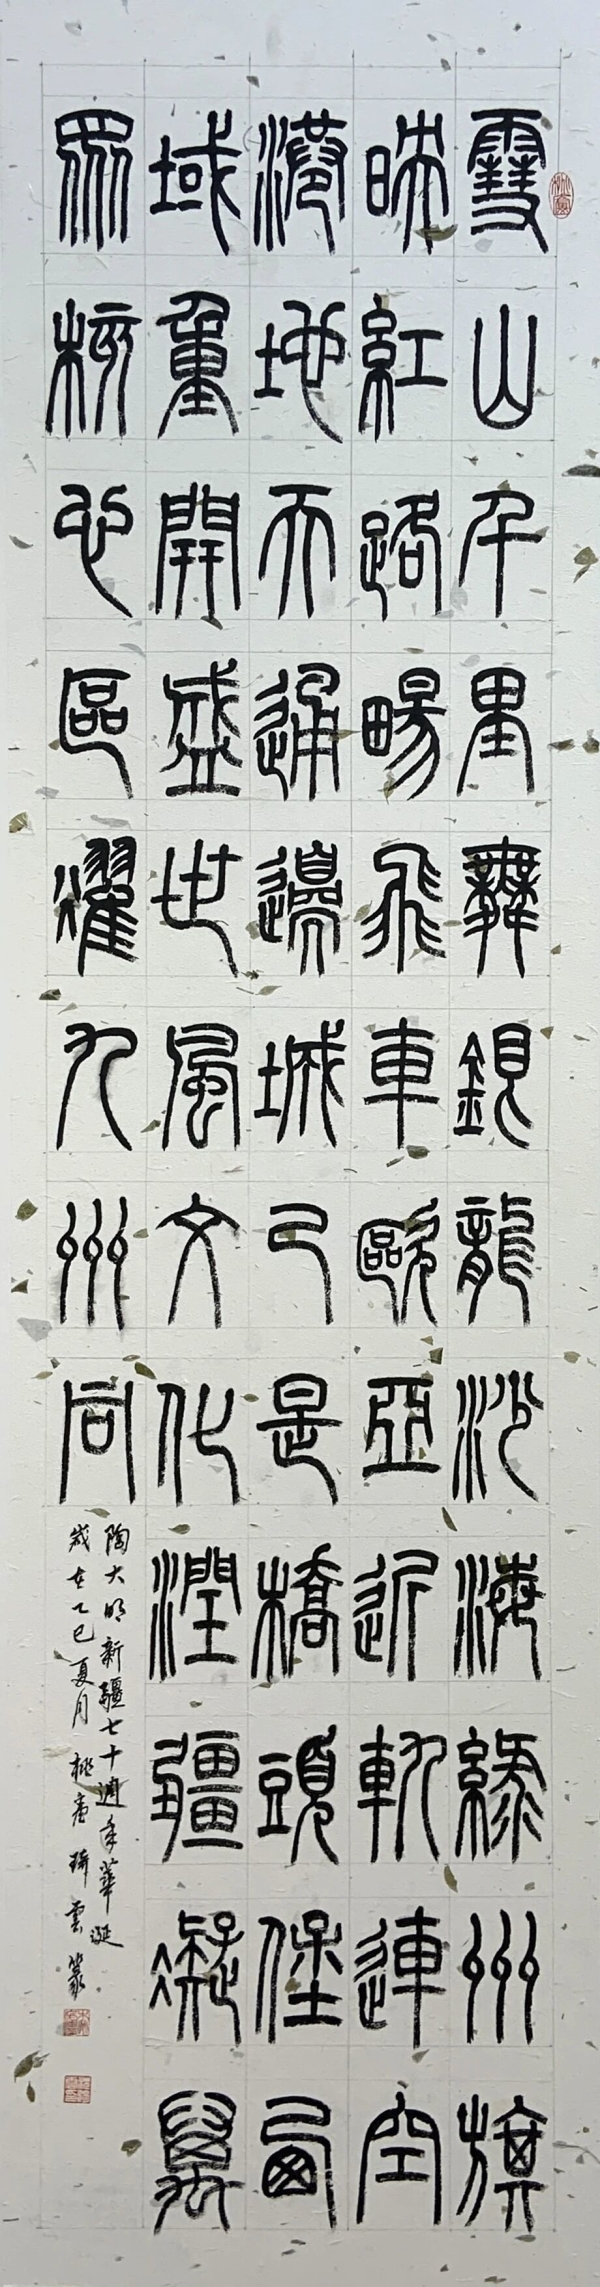 雪山千里舞銀龍沙海綠州旗
映紅路暢飛車歐亞近軌連空
港地天通邊城已是橋頭堡西
域重開盛世風文化潤疆凝萬
眾核心區耀九州同
陶大明新疆七十週年華誕
歲在乙巳夏月 雲篆